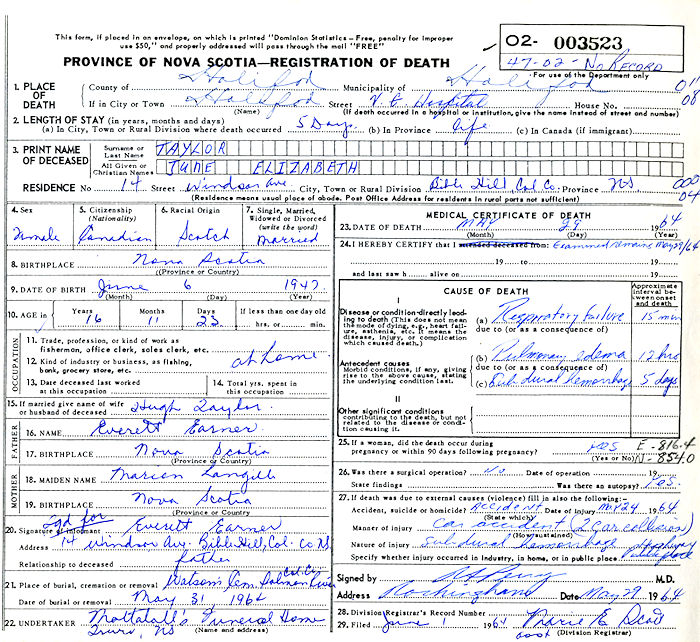 This form, if placed in an envelope, on which is printed "Dominion Statistics – Free, penalty for improper
use $50," and properly addressed will pass through the mail "FREE"
PROVINCE OF NOVA SCOTIA—REGISTRATION OF DEATH
02- 003523
47-02- No RECORD
For use of the Department only
1. PLACE OF DEATH
County of Halifax Municipality of Halifax
If in City or Town Halifax Street V. G. Hospital House No.
(Name) (If death occurred in a hospital or institution, give the name instead of street and number)
2. LENGTH OF STAY (in years, months and days)
(a) In City, Town or Rural Division where death occurred 5 Days (b) In Province life (c) In Canada (if immigrant)
3. PRINT NAME OF DECEASED
Surname or Last Name TAYLOR
All Given or Christian Names JUNE ELIZABETH
RESIDENCE No 14 Street Windsor Ave. City, Town or Rural Division Bible Hill Col Co. Province NS
(Residence means usual place of abode. Post Office Address for residents in rural parts not sufficient)
4. Sex 5. Citizenship (Nationality) 6. Racial Origin 7. Single, Married, Widowed or Divorced (write the word)
Female Canadian Scotch Married
8. BIRTHPLACE Nova Scotia
(Province or Country)
9. DATE OF BIRTH June 6 1947
(Month) (Day) (Year)
10. AGE in Years Months Days If less than one day old
16 11 23 hrs. or min.
OCCUPATION
11. Trade, profession, or kind of work as fisherman, office clerk, sales clerk, etc.
12. Kind of industry or business, as fishing, bank, grocery store, etc. at home
13. Date deceased last worked at this occupation 14. Total yrs. spent in this occupation
15. If married give name of wife or husband of deceased Hugh Taylor
FATHER
16. NAME Everett Earner
17. BIRTHPLACE Nova Scotia
(Province or Country)
MOTHER
18. MAIDEN NAME Marion Langill
19. BIRTHPLACE Nova Scotia
(Province or Country)
sgd for
20. Signature of informant Everett Earner
Address 14 Windsor Av. Bible Hill, Col. Co NS
Relationship to deceased father
21. Place of burial, cremation or removal Watson's Cem. Salmon River Col. Co.
Date of burial or removal May 31 1964
22. UNDERTAKER Mattatall's Funeral Home
Truro, NS (Name and address)
MEDICAL CERTIFICATE OF DEATH
23. DATE OF DEATH MAY 29 1964
(Month) (Day) (Year)
24. I HEREBY CERTIFY that I attended deceased from: Examined remains May 29/64
19 to 19
and last saw h alive on 19
CAUSE OF DEATH
Approximate interval between onset and death
I
Disease or condition directly leading to death (This does not mean the mode of dying, e.g., heart failure, asthenia, etc. It means the disease, injury, or complication which caused death.)
(a) Respiratory failure 15 min
due to (or as a consequence of)
Antecedent causes
Morbid conditions, if any, giving rise to the above cause, stating the underlying condition last.
(b) Pulmonary edema 12 hrs
due to (or as a consequence of)
(c) Subdural hemorrhage 5 days
II
Other significant conditions contributing to the death, but not related to the disease or condition causing it.
25. If a woman, did the death occur during pregnancy or within 90 days following pregnancy? yes
(Yes or No)
E-816.4
N-854.0
26. Was there a surgical operation? No Date of operation 19
State findings Was there an autopsy? Yes
27. If death was due to external causes (violence) fill in also the following:-
Accident, suicide or homicide? Accident Date of injury MAY 24 1964
(State which)
Manner of injury Car accident (2 car collision)
(How sustained)
Nature of injury Subdural hemorrhage
Specify whether injury occurred in industry, in home, or in public place. Highway
Signed by M.D.
Address Rockingham Date May 29 1964
28. Division Registrar's Record Number
29. Filed June 1 1964 Marie E Scott
(Division Registrar)